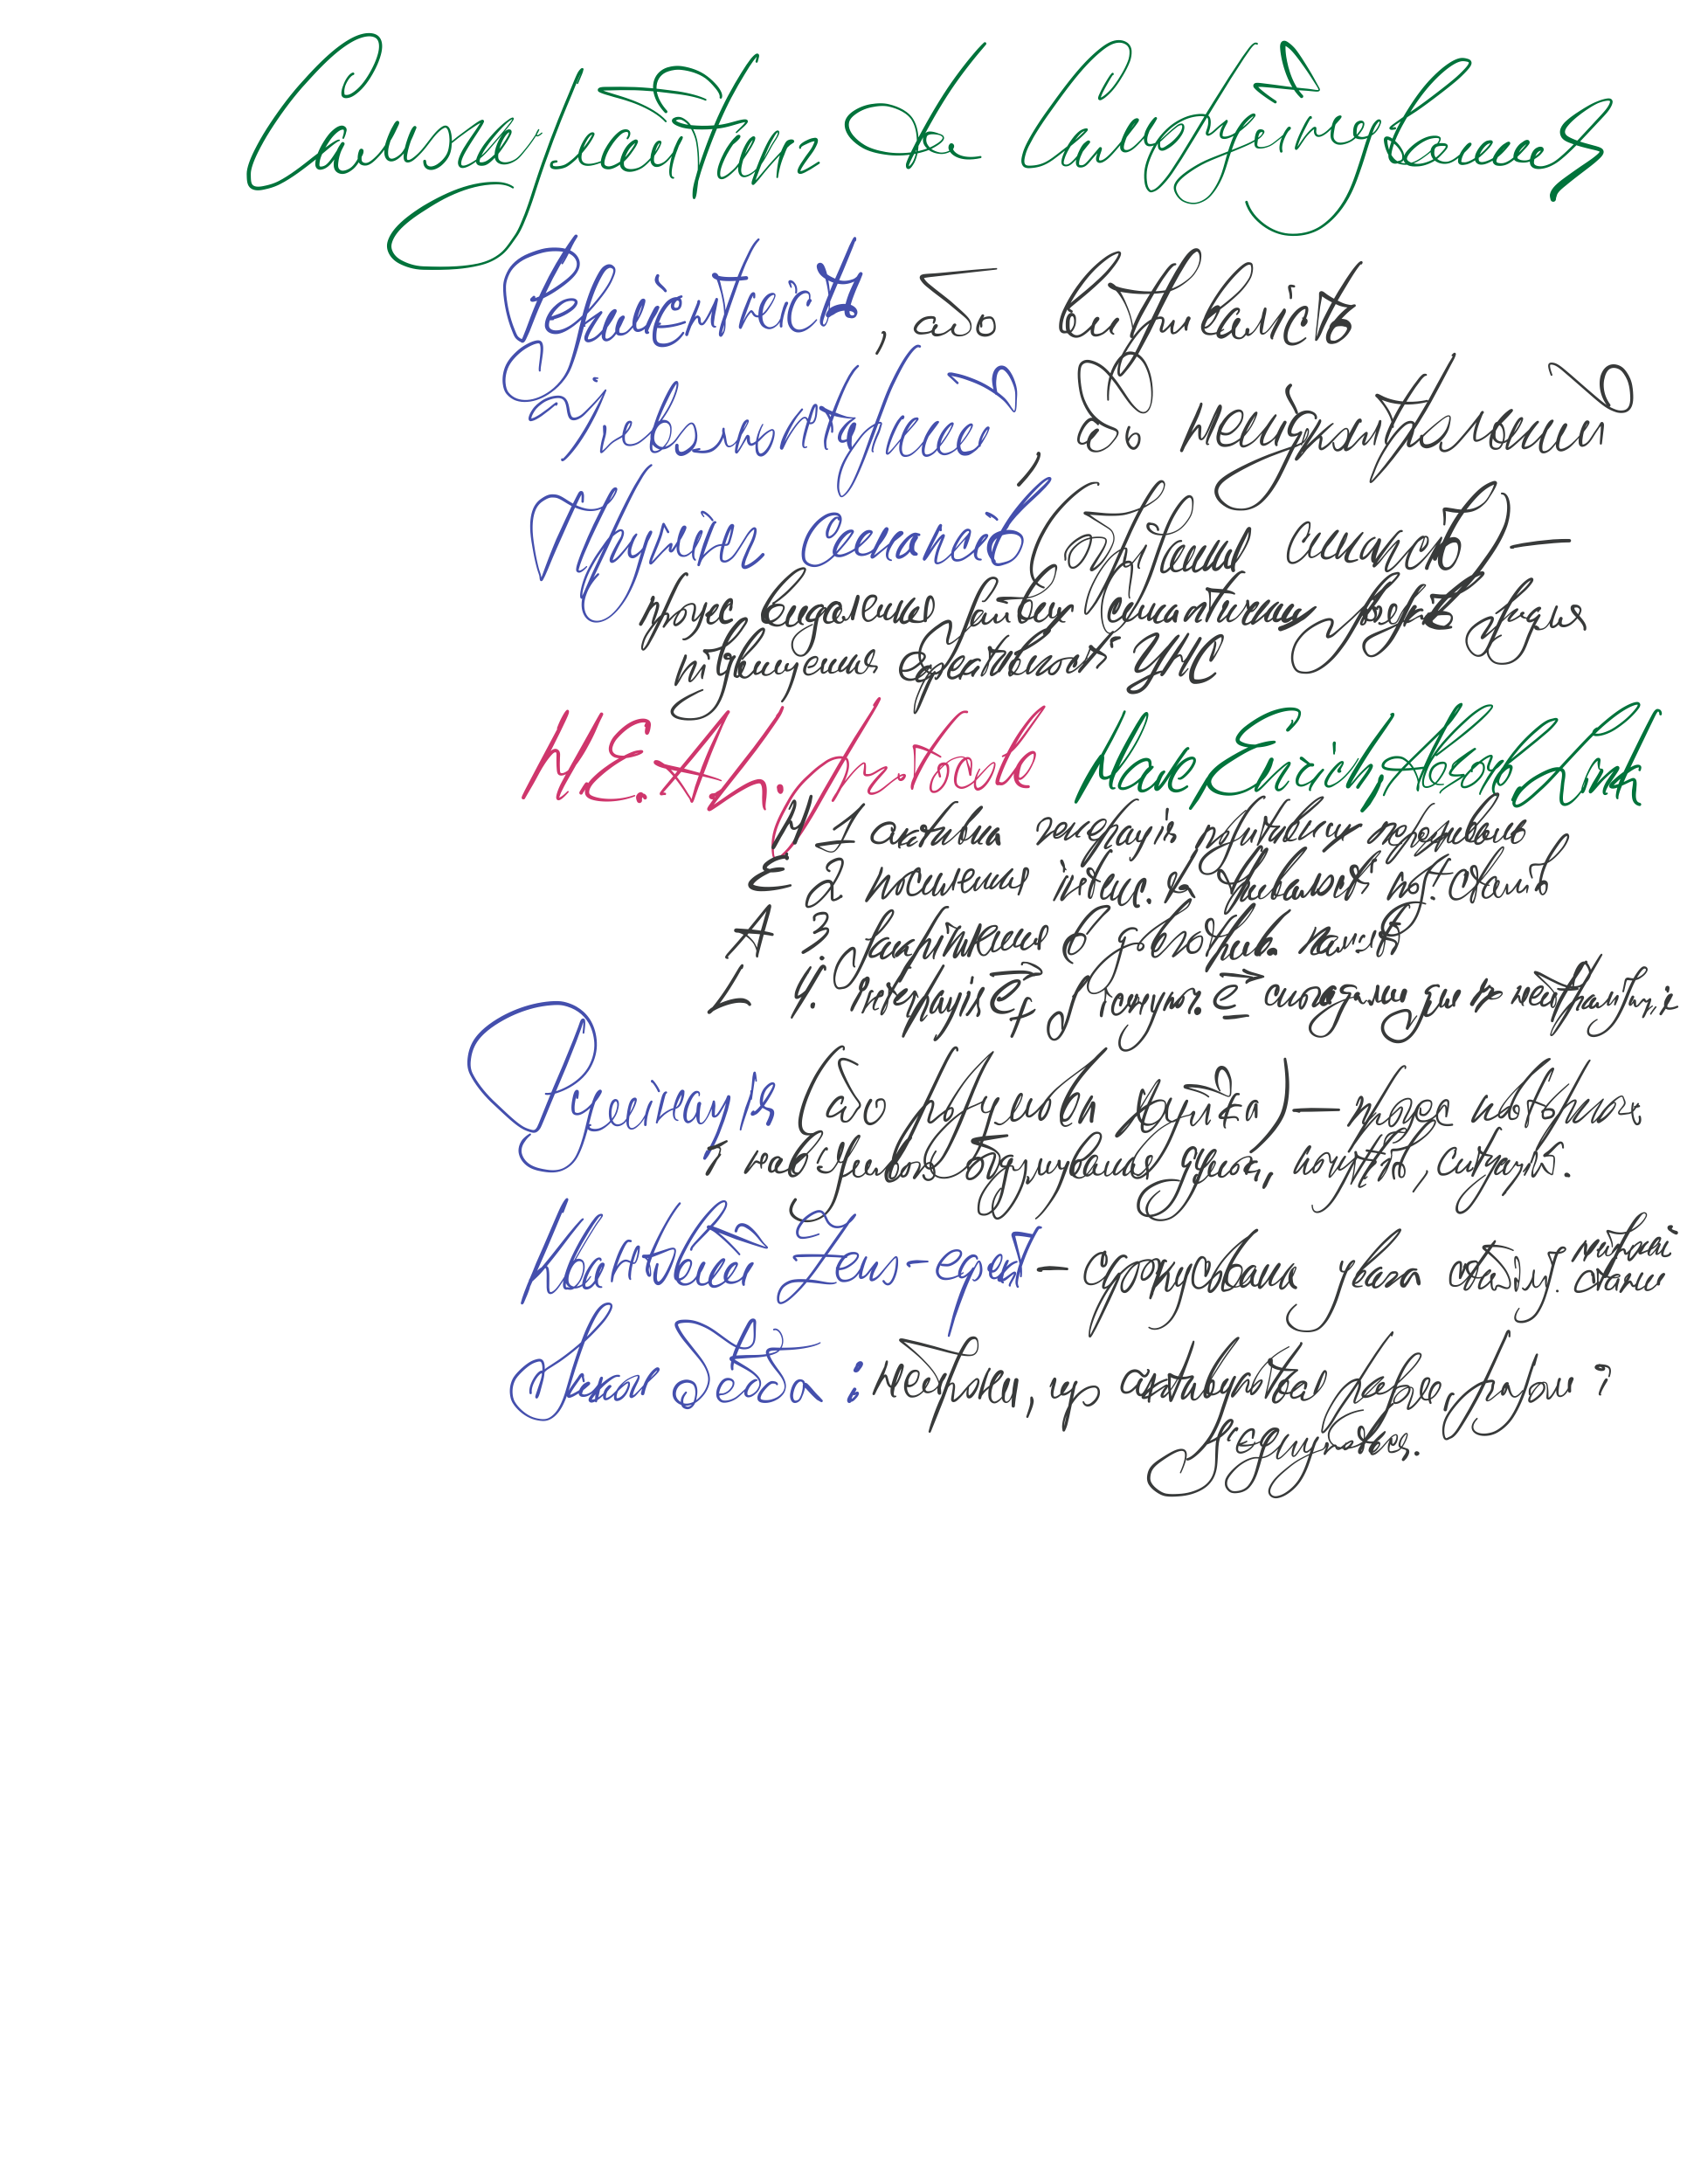 Самогаслайтинг та Саморуйнування
Резилієнтність, або витривалість
Інволюнтарний, або непідконтрольний
Прунінг синапсів (обрізання синапсів) —
процес видалення зайвих синаптичних зв'язків задля
підвищення ефективності ЦНС
H.E.A.L. protocole Have, Enrich, Absorb, Link
H 1 активна генерація позитивних переживань
E 2 посилення інтенс. та тривалості поз. станів
A 3. закріплення в довготрив. пам'яті
L 4. інтеграція e+ з існуюч. e- спогадами для по нейтралізація
Румінація (або розумова жуйка) — процес повторного
і нав'язливого обдумування думок, почуттів, ситуацій.
Квантовий Zeno-ефект — сфокусована увага стабіліз. нейронні стани
Закон Хебба: нейрони, що активуються разом, разом і
з'єднуються.